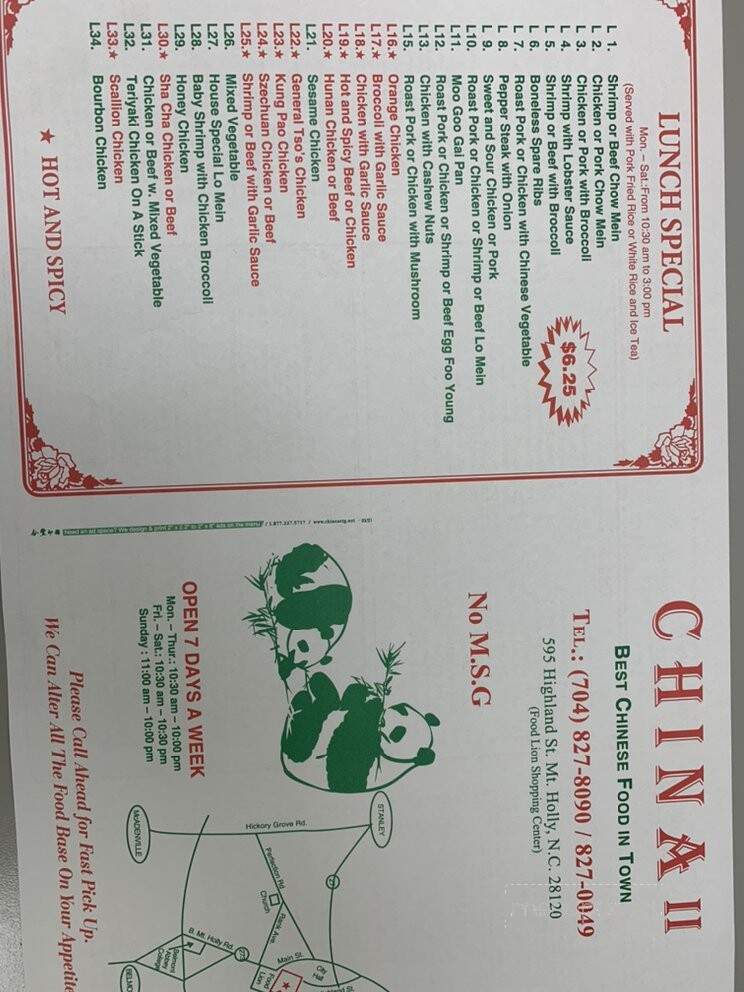 LUNCH SPECIAL
Mon. – Sat.:From 10:30 am to 3:00 pm
(Served with Pork Fried Rice or White Rice and Ice Tea)
$6.25
L 1. Shrimp or Beef Chow Mein
L 2. Chicken or Pork Chow Mein
L 3. Chicken or Pork with Broccoli
L 4. Shrimp with Lobster Sauce
L 5. Shrimp or Beef with Broccoli
L 6. Boneless Spare Ribs
L 7. Roast Pork or Chicken with Chinese Vegetable
L 8. Pepper Steak with Onion
L 9. Sweet and Sour Chicken or Pork
L10. Roast Pork or Chicken or Shrimp or Beef Lo Mein
L11. Moo Goo Gai Pan
L12. Roast Pork or Chicken or Shrimp or Beef Egg Foo Young
L13. Chicken with Cashew Nuts
L15. Roast Pork or Chicken with Mushroom
L16.★ Orange Chicken
L17.★ Broccoli with Garlic Sauce
L18.★ Chicken with Garlic Sauce
L19.★ Hot and Spicy Beef or Chicken
L20.★ Hunan Chicken or Beef
L21. Sesame Chicken
L22.★ General Tso's Chicken
L23.★ Kung Pao Chicken
L24.★ Szechuan Chicken or Beef
L25.★ Shrimp or Beef with Garlic Sauce
L26. Mixed Vegetable
L27. House Special Lo Mein
L28. Baby Shrimp with Chicken Broccoli
L29. Honey Chicken
L30.★ Sha Cha Chicken or Beef
L31. Chicken or Beef w. Mixed Vegetable
L32. Teriyaki Chicken On A Stick
L33.★ Scallion Chicken
L34. Bourbon Chicken
★ HOT AND SPICY
Need an ad space? We design & print 2" x 3.5" to 2" x 6" ads on the menu
CHINA II
BEST CHINESE FOOD IN TOWN
TEL.: (704) 827-8090 / 827-0049
595 Highland St. Mt. Holly, N.C. 28120
(Food Lion Shopping Center)
No M.S.G
OPEN 7 DAYS A WEEK
Mon. – Thur.: 10:30 am – 10:00 pm
Fri. – Sat.: 10:30 am – 10:30 pm
Sunday : 11:00 am – 10:00 pm
Please Call Ahead for Fast Pick Up.
We Can Alter All The Food Base On Your Appetite
STANLEY
Hickory Grove Rd.
McADENVILLE
Perfection Rd.
Church
27
Main St.
City Hall
Food Lion
B. Mt. Holly Rd.
Belmont Abbey College